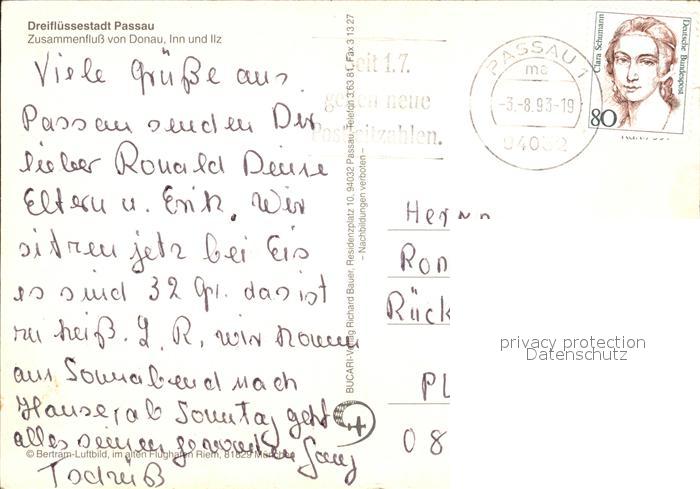 Dreiflüssestadt Passau
Zusammenfluß von Donau, Inn und Ilz
Viele Grüße aus
Passau senden Dir
lieber Ronald Deine
Eltern u. Erik. Wir
sitzen jetz bei Eis
es sind 32 Gr. das ist
zu heiß. L. R. wir komm
am Sonnabend nach
Hause, ab Sonntag geht
alles seinen gewohnten Gang
Tschüß
© Bertram-Luftbild, im alten Flughafen Riem, 81829 München
BUCARI-Verlag Richard Bauer, Residenzplatz 10, 94032 Passau, Telefon 3 63 81, Fax 3 13 27
– Nachbildungen verboten –
Seit 1.7.
gelten neue
Postleitzahlen.
PASSAU 1
mc
-3.-8.93-19
94032
Clara Schumann
Deutsche Bundespost
80
Herrn
Ron
Rück
PL
08
privacy protection
Datenschutz